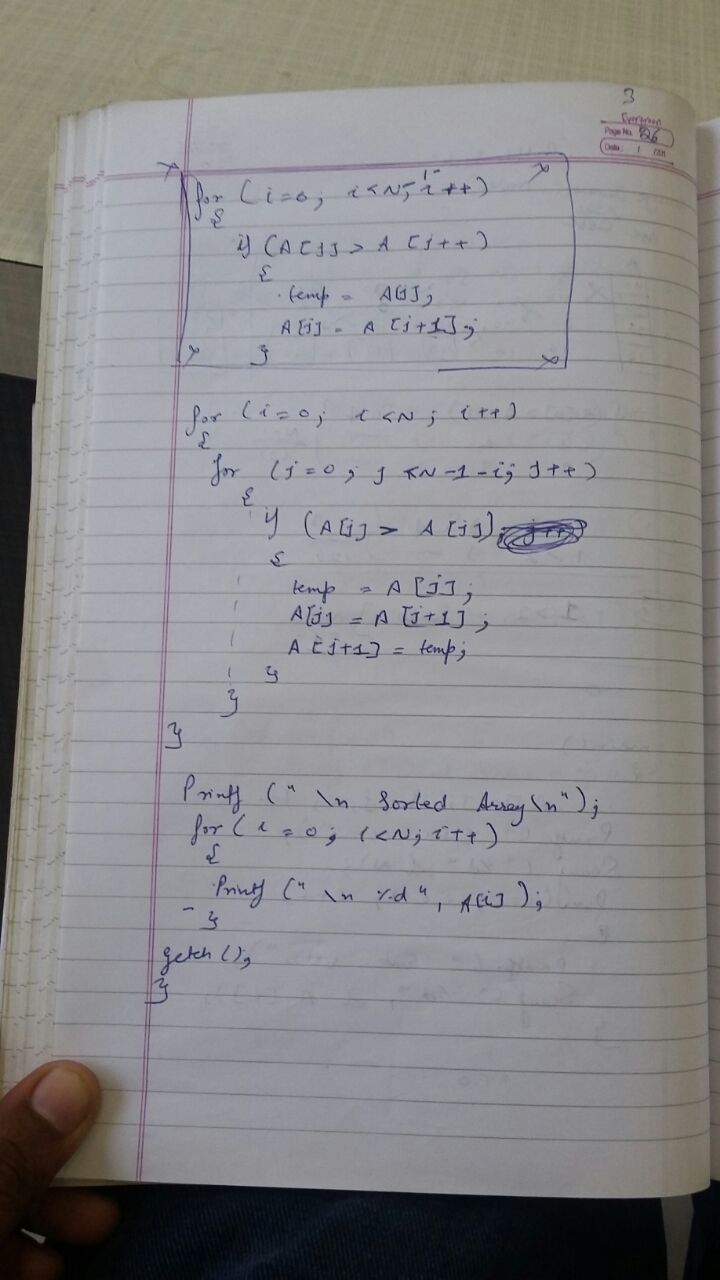 3
Page No. 26
Date: / /201
for (i=0; i<N; i++)
{
if (A[j] > A [j++)
{
temp = A[j];
A[j] = A [j+1];
}
for (i=0; i<N; i++)
{
for (j=0; j<N-1-i; j++)
{
if (A[j] > A[j])
{
temp = A[j];
A[j] = A [j+1];
A [j+1] = temp;
}
}
}
Printf (" \n Sorted Array\n");
for (i=0; i<N; i++)
{
Printf (" \n %d", A[i]);
}
getch();
}